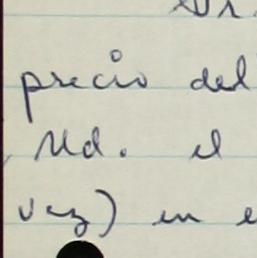 precio del
Ud. el
vez) en e